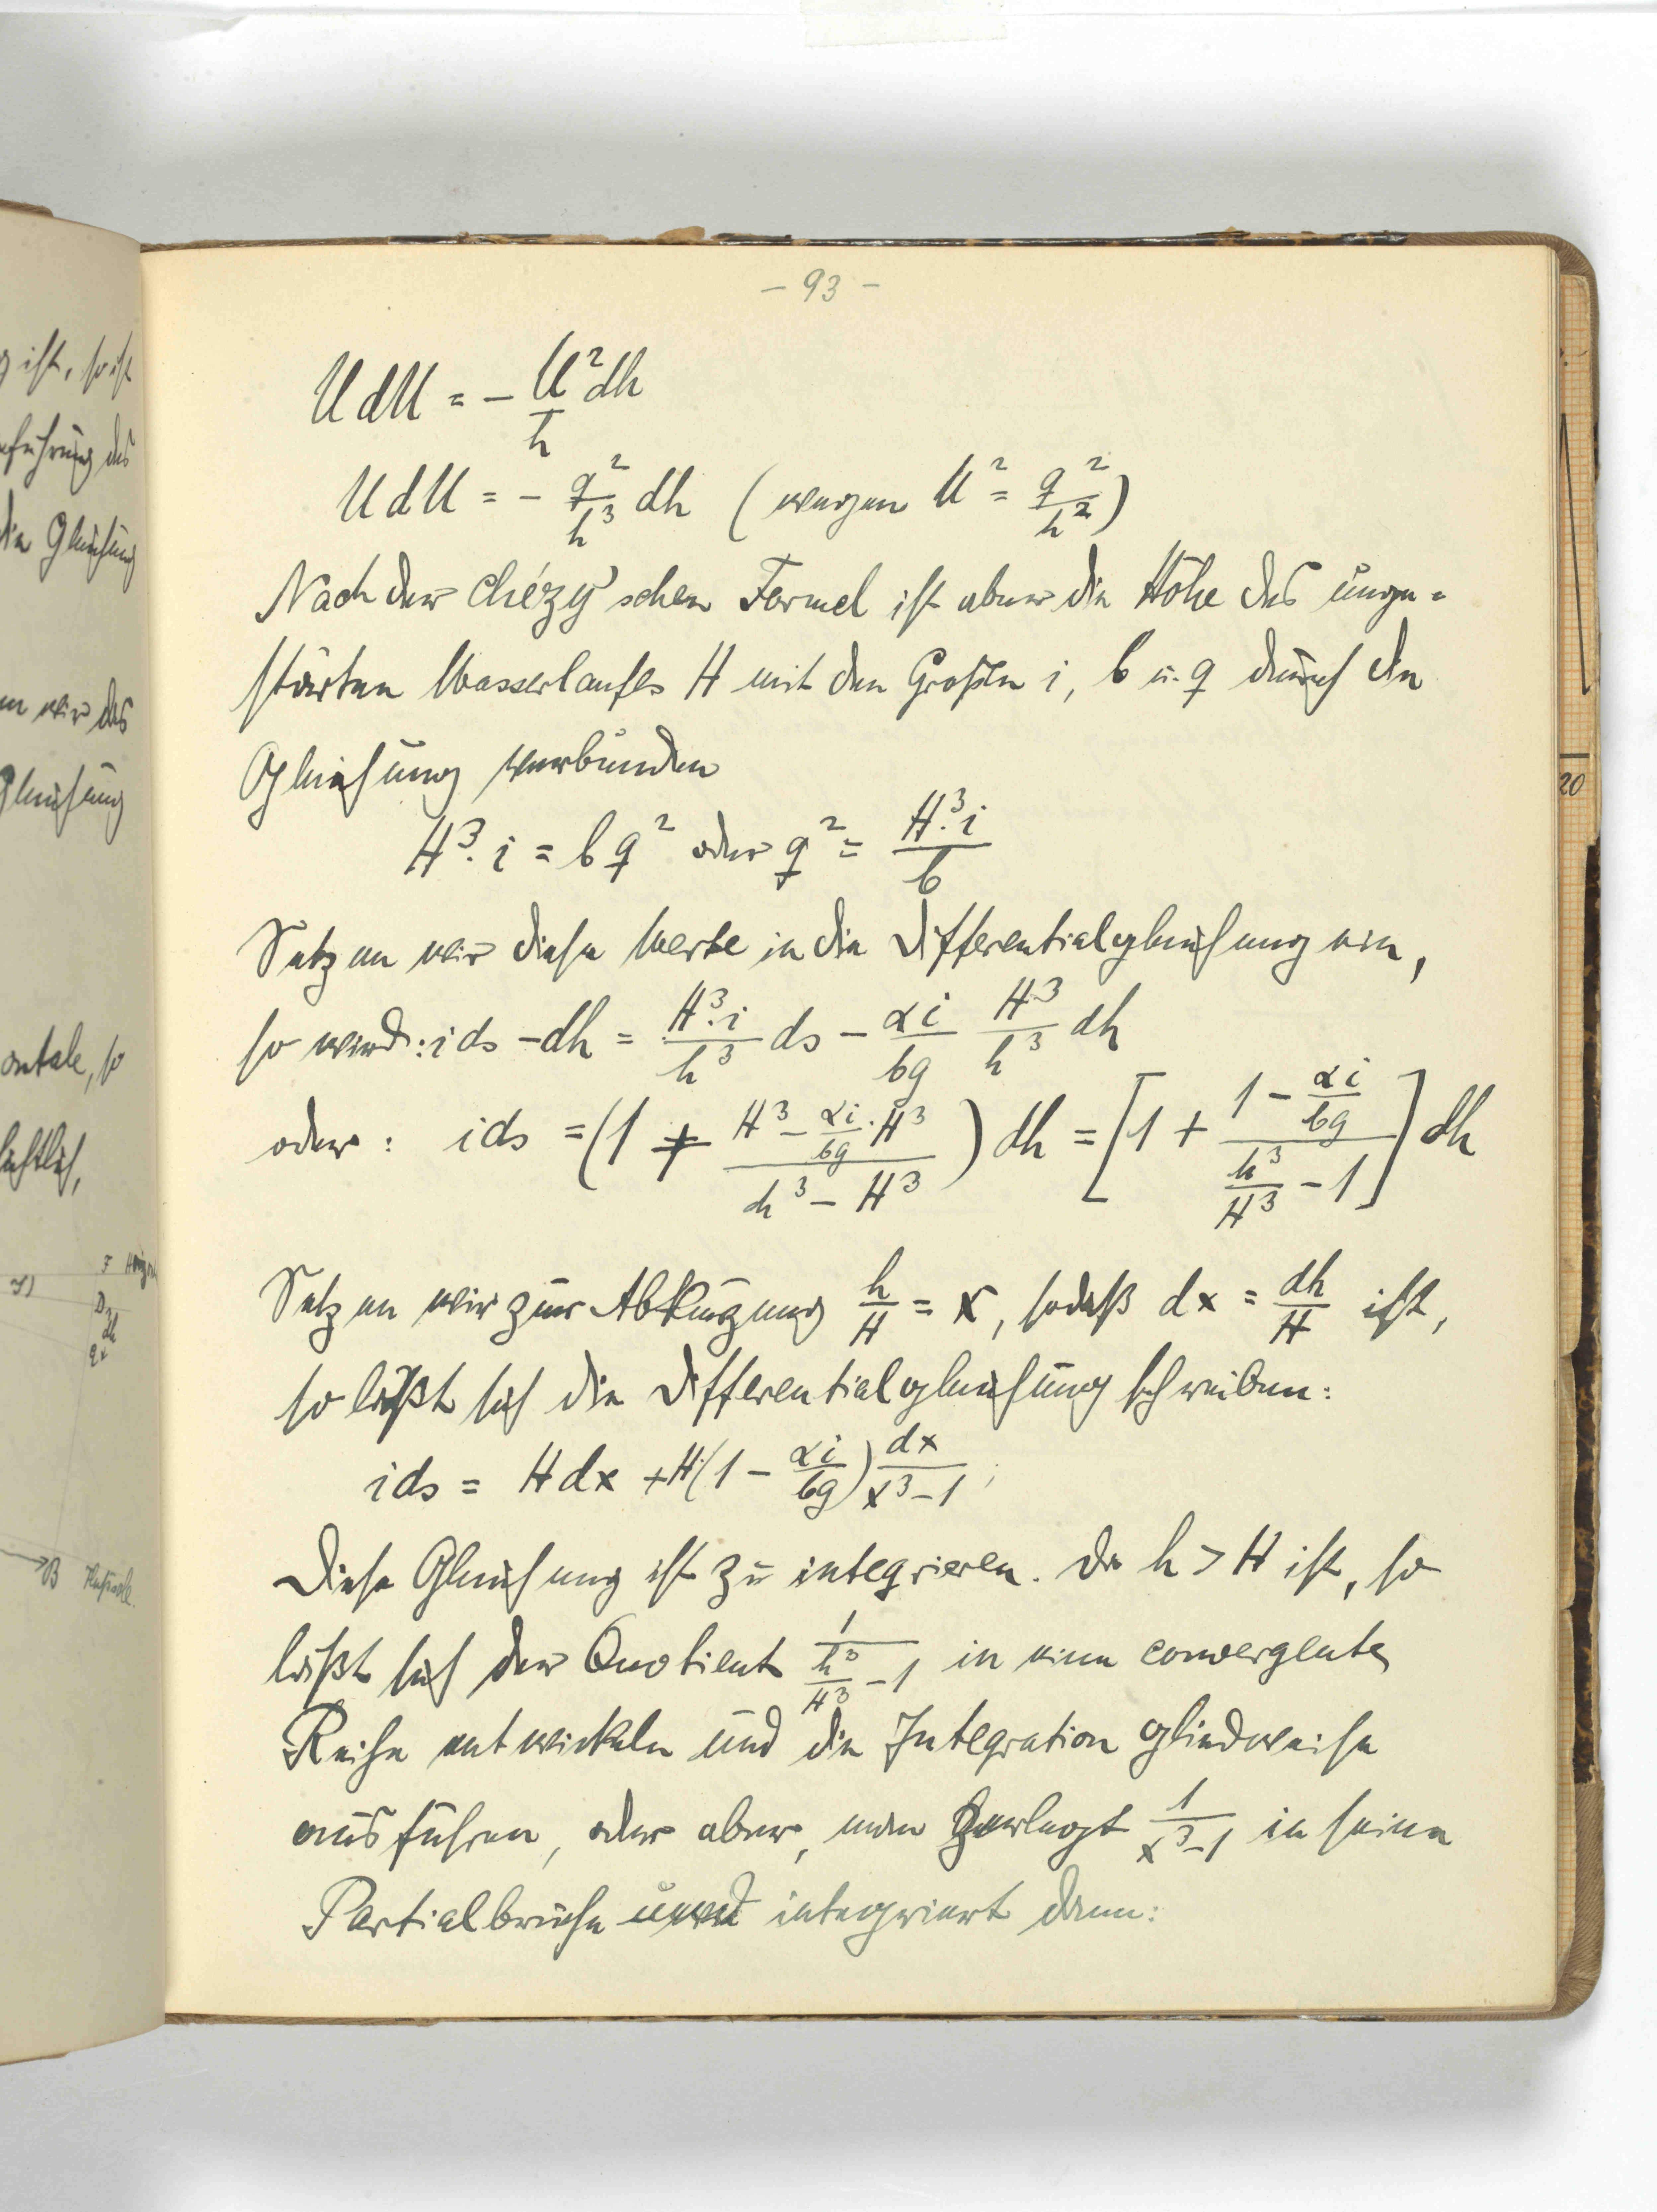 - 93 -
U dU = - U²/h dh
U dU = - q²/h³ dh (wegen U² = q²/h²)
Nach der Chézy'schen Formel ist aber die Höhe des unge=
störten Wasserlaufes H mit den Größen i, b u. q durch die
Gleichung verbunden
H³·i = b q² oder q² = H³·i/b
Setzen wir diese Werte in die Differentialgleichung ein,
so wird: i ds - dh = H³·i/h³ ds - αi/bg H³/h³ dh
oder: i ds = (1 + (H³ - αi/bg · H³)/(h³ - H³)) dh = [1 + (1 - αi/bg)/(h³/H³ - 1)] dh
Setzen wir zur Abkürzung h/H = x, sodaß dx = dh/H ist,
so läßt sich die Differentialgleichung schreiben:
i ds = H dx + H(1 - αi/bg) dx/(x³ - 1)
Diese Gleichung ist zu integrieren. Da h > H ist, so
läßt sich der Quotient 1/(h³/H³ - 1) in eine convergente
Reihe entwickeln und die Integration gliedweise
ausführen, oder aber, man zerlegt 1/(x³-1) in seine
Partialbrüche und integriert dann:
ist, so ist
des
die Gleichung
wir das
Gleichung
so
F
D
dh
B
20